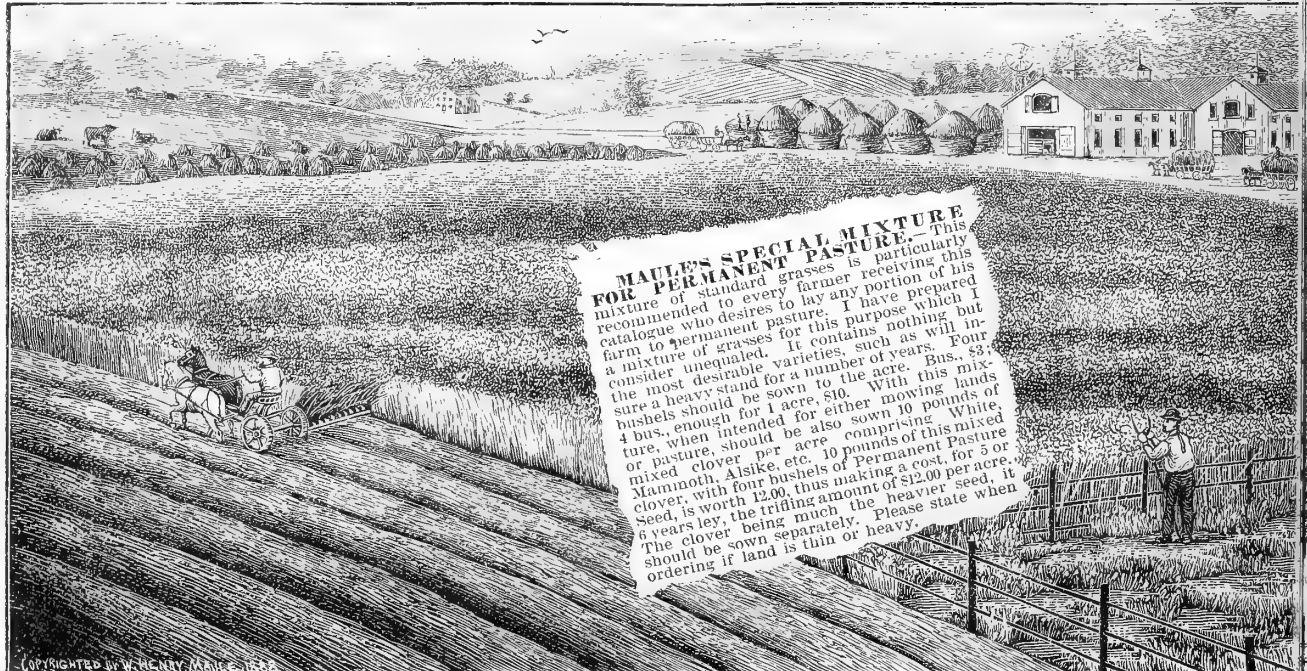 MAULE'S SPECIAL MIXTURE
FOR PERMANENT PASTURE.—This
mixture of standard grasses is particularly
recommended to every farmer receiving this
catalogue who desires to lay any portion of his
farm to permanent pasture. I have prepared
a mixture of grasses for this purpose which I
consider unequaled. It contains nothing but
the most desirable varieties, such as will in-
sure a heavy stand for a number of years. Four
bushels should be sown to the acre. Bus., $3;
4 bus., enough for 1 acre, $10. With this mix-
ture, when intended for either mowing lands
or pasture, should be also sown 10 pounds of
mixed clover per acre comprising White,
Mammoth, Alsike, etc. 10 pounds of this mixed
clover, with four bushels of Permanent Pasture
Seed, is worth 12.00, thus making a cost, for 5 or
6 years ley, the trifling amount of $12.00 per acre.
The clover being much the heavier seed, it
should be sown separately. Please state when
ordering if land is thin or heavy.
COPYRIGHTED BY W. HENRY MAULE.